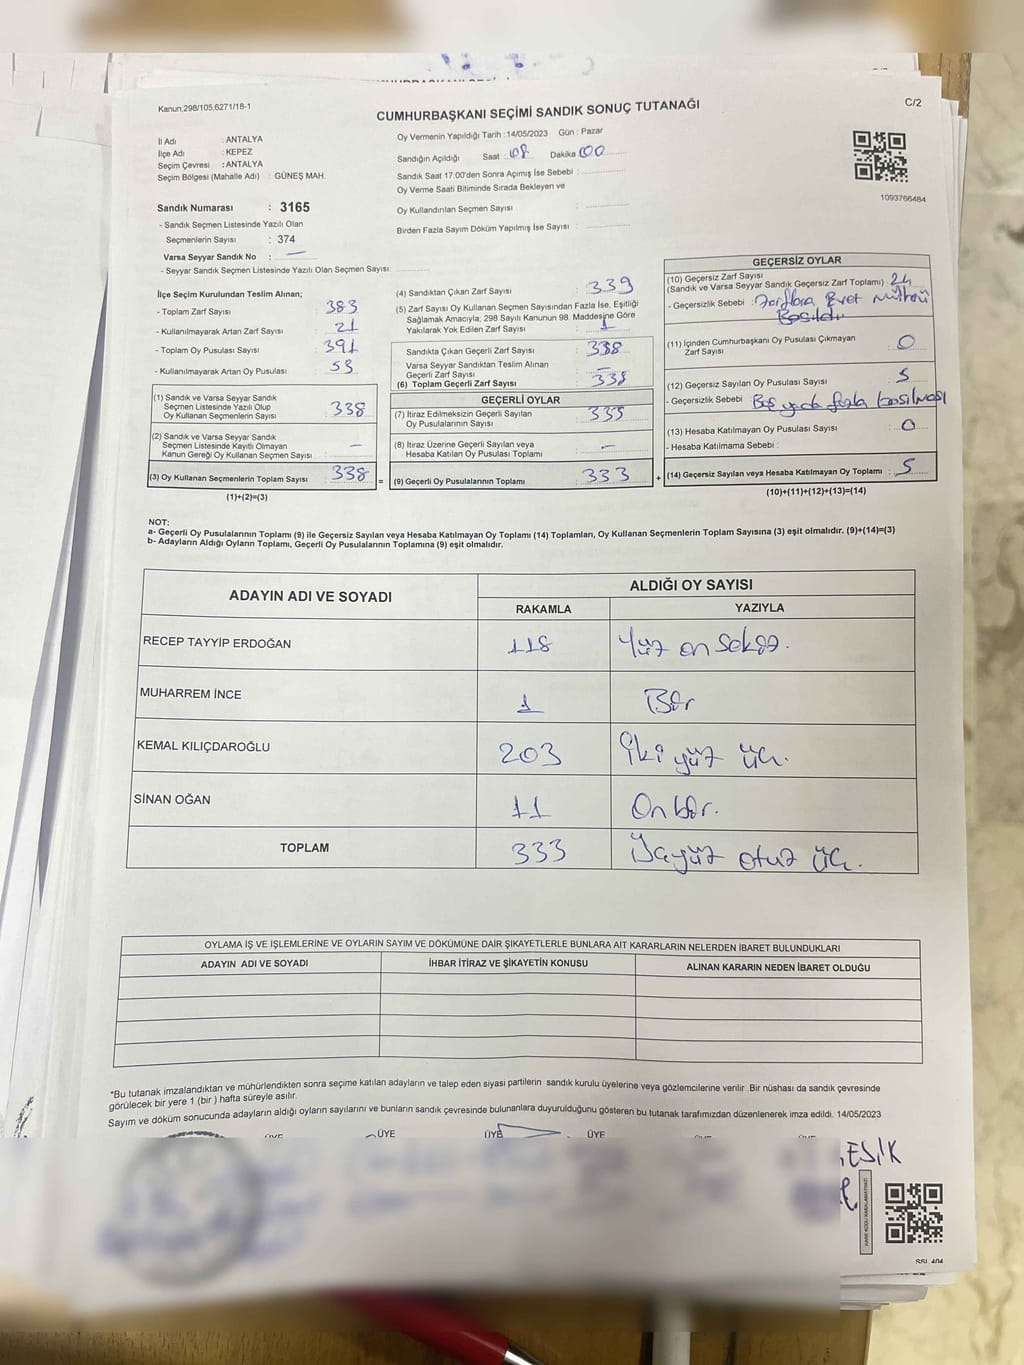 Kanun;298/105;6271/18-1
CUMHURBAŞKANI SEÇİMİ SANDIK SONUÇ TUTANAĞI
C/2
İl Adı : ANTALYA
İlçe Adı : KEPEZ
Seçim Çevresi : ANTALYA
Seçim Bölgesi (Mahalle Adı) : GÜNEŞ MAH.
Oy Vermenin Yapıldığı Tarih :14/05/2023 Gün : Pazar
Sandığın Açıldığı Saat : 08 Dakika : 00
Sandık Saat 17:00'den Sonra Açımış İse Sebebi :
Oy Verme Saati Bitiminde Sırada Bekleyen ve
Oy Kullandırılan Seçmen Sayısı :
Birden Fazla Sayım Döküm Yapılmış İse Sayısı :
1093766484
Sandık Numarası : 3165
- Sandık Seçmen Listesinde Yazılı Olan
Seçmenlerin Sayısı : 374
Varsa Seyyar Sandık No : —
- Seyyar Sandık Seçmen Listesinde Yazılı Olan Seçmen Sayısı:
İlçe Seçim Kurulundan Teslim Alınan;
- Toplam Zarf Sayısı : 383
- Kullanılmayarak Artan Zarf Sayısı : 21
- Toplam Oy Pusulası Sayısı : 391
- Kullanılmayarak Artan Oy Pusulası : 53
(1) Sandık ve Varsa Seyyar Sandık
Seçmen Listesinde Yazılı Olup
Oy Kullanan Seçmenlerin Sayısı : 338
(2) Sandık ve Varsa Seyyar Sandık
Seçmen Listesinde Kayıtlı Olmayan
Kanun Gereği Oy Kullanan Seçmen Sayısı : —
(3) Oy Kullanan Seçmenlerin Toplam Sayısı : 338
(1)+(2)=(3)
(4) Sandıktan Çıkan Zarf Sayısı : 339
(5) Zarf Sayısı Oy Kullanan Seçmen Sayısından Fazla İse, Eşitliği
Sağlamak Amacıyla; 298 Sayılı Kanunun 98. Maddesine Göre
Yakılarak Yok Edilen Zarf Sayısı : 1
Sandıkta Çıkan Geçerli Zarf Sayısı : 338
Varsa Seyyar Sandıktan Teslim Alınan
Geçerli Zarf Sayısı : —
(6) Toplam Geçerli Zarf Sayısı : 338
GEÇERLİ OYLAR
(7) İtiraz Edilmeksizin Geçerli Sayılan
Oy Pusulalarının Sayısı : 333
(8) İtiraz Üzerine Geçerli Sayılan veya
Hesaba Katılan Oy Pusulası Toplamı : —
= (9) Geçerli Oy Pusulalarının Toplamı : 333
GEÇERSİZ OYLAR
(10) Geçersiz Zarf Sayısı
(Sandık ve Varsa Seyyar Sandık Geçersiz Zarf Toplamı) : 24
- Geçersizlik Sebebi : Zarflara Evet mührü
Basıldı
(11) İçinden Cumhurbaşkanı Oy Pusulası Çıkmayan
Zarf Sayısı : 0
(12) Geçersiz Sayılan Oy Pusulası Sayısı : 5
- Geçersizlik Sebebi : Boş yada fazla basılması
(13) Hesaba Katılmayan Oy Pusulası Sayısı : 0
- Hesaba Katılmama Sebebi :
+ (14) Geçersiz Sayılan veya Hesaba Katılmayan Oy Toplamı : 5
(10)+(11)+(12)+(13)=(14)
NOT:
a- Geçerli Oy Pusulalarının Toplamı (9) ile Geçersiz Sayılan veya Hesaba Katılmayan Oy Toplamı (14) Toplamları, Oy Kullanan Seçmenlerin Toplam Sayısına (3) eşit olmalıdır. (9)+(14)=(3)
b- Adayların Aldığı Oyların Toplamı, Geçerli Oy Pusulalarının Toplamına (9) eşit olmalıdır.
ADAYIN ADI VE SOYADI
ALDIĞI OY SAYISI
RAKAMLA YAZIYLA
RECEP TAYYİP ERDOĞAN 118 Yüz on sekiz.
MUHARREM İNCE 1 Bir
KEMAL KILIÇDAROĞLU 203 İki yüz üç.
SİNAN OĞAN 11 On bir.
TOPLAM 333 Üçyüz otuz üç.
OYLAMA İŞ VE İŞLEMLERİNE VE OYLARIN SAYIM VE DÖKÜMÜNE DAİR ŞİKAYETLERLE BUNLARA AİT KARARLARIN NELERDEN İBARET BULUNDUKLARI
ADAYIN ADI VE SOYADI İHBAR İTİRAZ VE ŞİKAYETİN KONUSU ALINAN KARARIN NEDEN İBARET OLDUĞU
*Bu tutanak imzalandıktan ve mühürlendikten sonra seçime katılan adayların ve talep eden siyasi partilerin sandık kurulu üyelerine veya gözlemcilerine verilir .Bir nüshası da sandık çevresinde
görülecek bir yere 1 (bir ) hafta süreyle asılır.
Sayım ve döküm sonucunda adayların aldığı oyların sayılarını ve bunların sandık çevresinde bulunanlara duyurulduğunu gösteren bu tutanak tarafımızdan düzenlenerek imza edildi. 14/05/2023
ÜYE ÜYE ÜYE ÜYE
ESİK